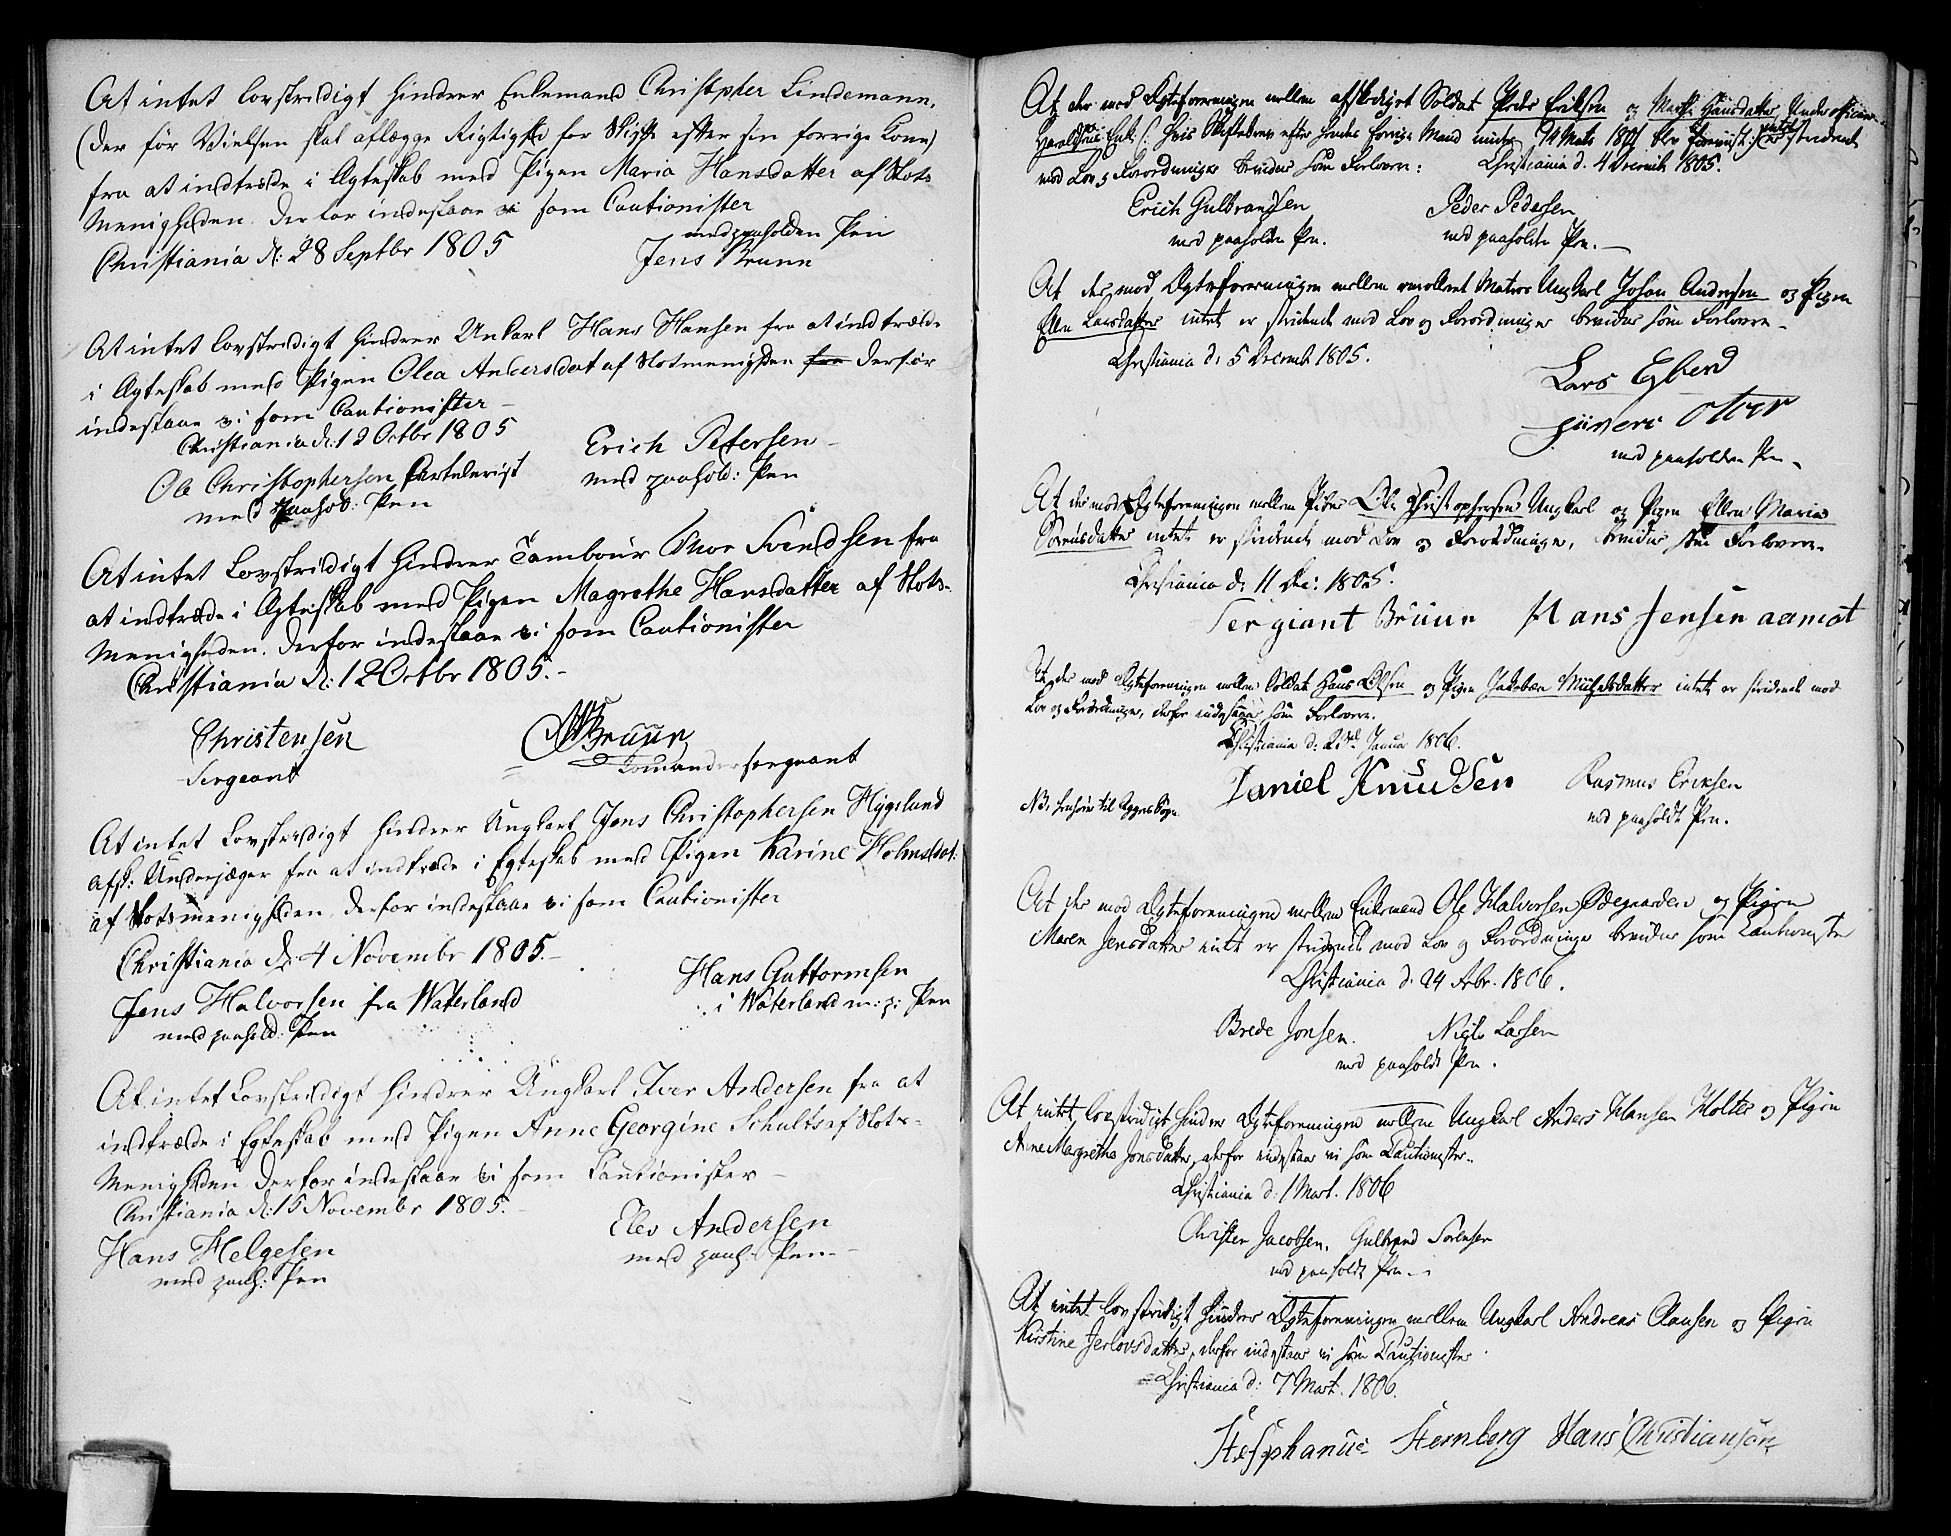 At intet lovstridigt hindrer Enkemand Christopher Lindemann,
(der för Vielsen skal aflægge Rigtighed for Skifte efter sin forrige Kone)
fra at indtræde i Ægteskab med Pigen Maria Hansdatter af Slots
Menigheden. Derfor indestaae vi som Cautionister
Christiania d: 28 Septbr 1805
med paaholden Pen
Jens Bruun
At intet lovstridigt hindrer Unkarl Hans Hansen fra at indtræde
i Ægteskab med Pigen Olea Andersdat af Slotmenigheden fra derfor
indestaae vi som Cautionister
Christiania d: 12 Octbr 1805
Ole Christophersen
med paahol: Pen
Erich Petersen
med paahold: Pen
At intet Lovstridigt hindrer Tambour Thor Svendsen fra
at indtræde i Ægteskab med Pigen Magrethe Hansdatter af Slots-
Menigheden. Derfor indestaae vi som Cautionister
Christiania d: 12 Octbr 1805.-
Christensen
Sergeant
Bruun
Comandersergeant
At intet Lovstridigt hindrer Ungkarl Jens Christophersen Hÿgslund
afsk: Underjæger fra at indtræde i Egteskab med Pigen Karine Holmsdat:
af Slotsmenigheden derfor indestaae vi som Cautionister
Christiania d: 4 Novembr 1805.-
Jens Halvorsen fra Waterland
med paahold: Pen
Hans Guttormsen
i Waterland m: p: Pen
At intet Lovstridigt hindrer Ungkarl Iver Andersen fra at
indtræde i Egteskab med Pigen Anne Georgine Schults af Slots-
Menigheden derfor indestaae vi som Cautionister -
Christiania d: 15 Novembr 1805.-
Hans Helgesen
med paah: Pen
Elev Andersen
med paah: Pen -
At der mod Ægteforeningen mellem afskediget Soldat Peder Eriksen og Marthe Hansdatter Underofficeer
Enke (: hvis Skiftebrev efter hendes forrige Mand under 14 Marts 1801 blev foreviist :) intet er stridende
med Lov og Forordninger bevidner som Forlovere: Christiania d. 4 Decembr 1805.
Erich Gulbrandsen
med paaholden Pen.
Peder Pedersen
med paaholden Pen. -
At der mod Ægteforeningen mellem enrolleret Matros Ungkarl Johan Andersen og Pigen
Ellen Larsdatter intet er stridende mod Lov og Forordninger bevidner som Forlovere -
Christiania d: 5 Decemb 1805.
Lars
med paaholden Pen -
At der mod Ægteforeningen mellem Piber Ole Christophersen Ungkarl og Pigen Ellen Maria
Sörensdatter intet er stridende mod Lov og Forordninger, bevidner som Forlovere.
Christiania d: 11 Dec: 1805.
Sergiant Bruun Hans Jensen aamot
At der mod Ægteforeningen mellem Soldat Hans Olsen og Pigen Jakobea Michelsdatter intet er stridende mod
Lov og Forordninger, derfor indestaaer som Forlovere.
Christiania d: 2det Januar 1806.
Daniel Knudsen Rasmus Eriksen
med paaholdt Pen.
At der mod Ægteforeningen mellem Enkemand Ole Halvorsen Ödegaarden og Pigen
Maren Jensdatter intet er stridende mod Lov og Forordninger bevidner som Cautionister
Christiania d. 24 Febr. 1806.
Brede Jonsen. Niels Larsen
med paaholdt Pen.
At intet lovstridigt hindrer Ægteforeningen mellem Ungkarl Anders Hansen Holter og Pigen
Anne Margrethe Jonsdatter, derfor indestaae vi som Cautionister.
Christiania d: 1 Mart. 1806
Christen Jacobsen. Gulbrand Sörensen
med paaholdt Pen -
At intet lovstridigt hindrer Ægteforeningen mellem Ungkarl Andreas Clausen og Pigen
Kirstine Jerlovsdatter, derfor indestaae vi som Cautionister.
Christiania d: 7 Mart. 1806.
Stephanus Sternberg Hans Christiansön